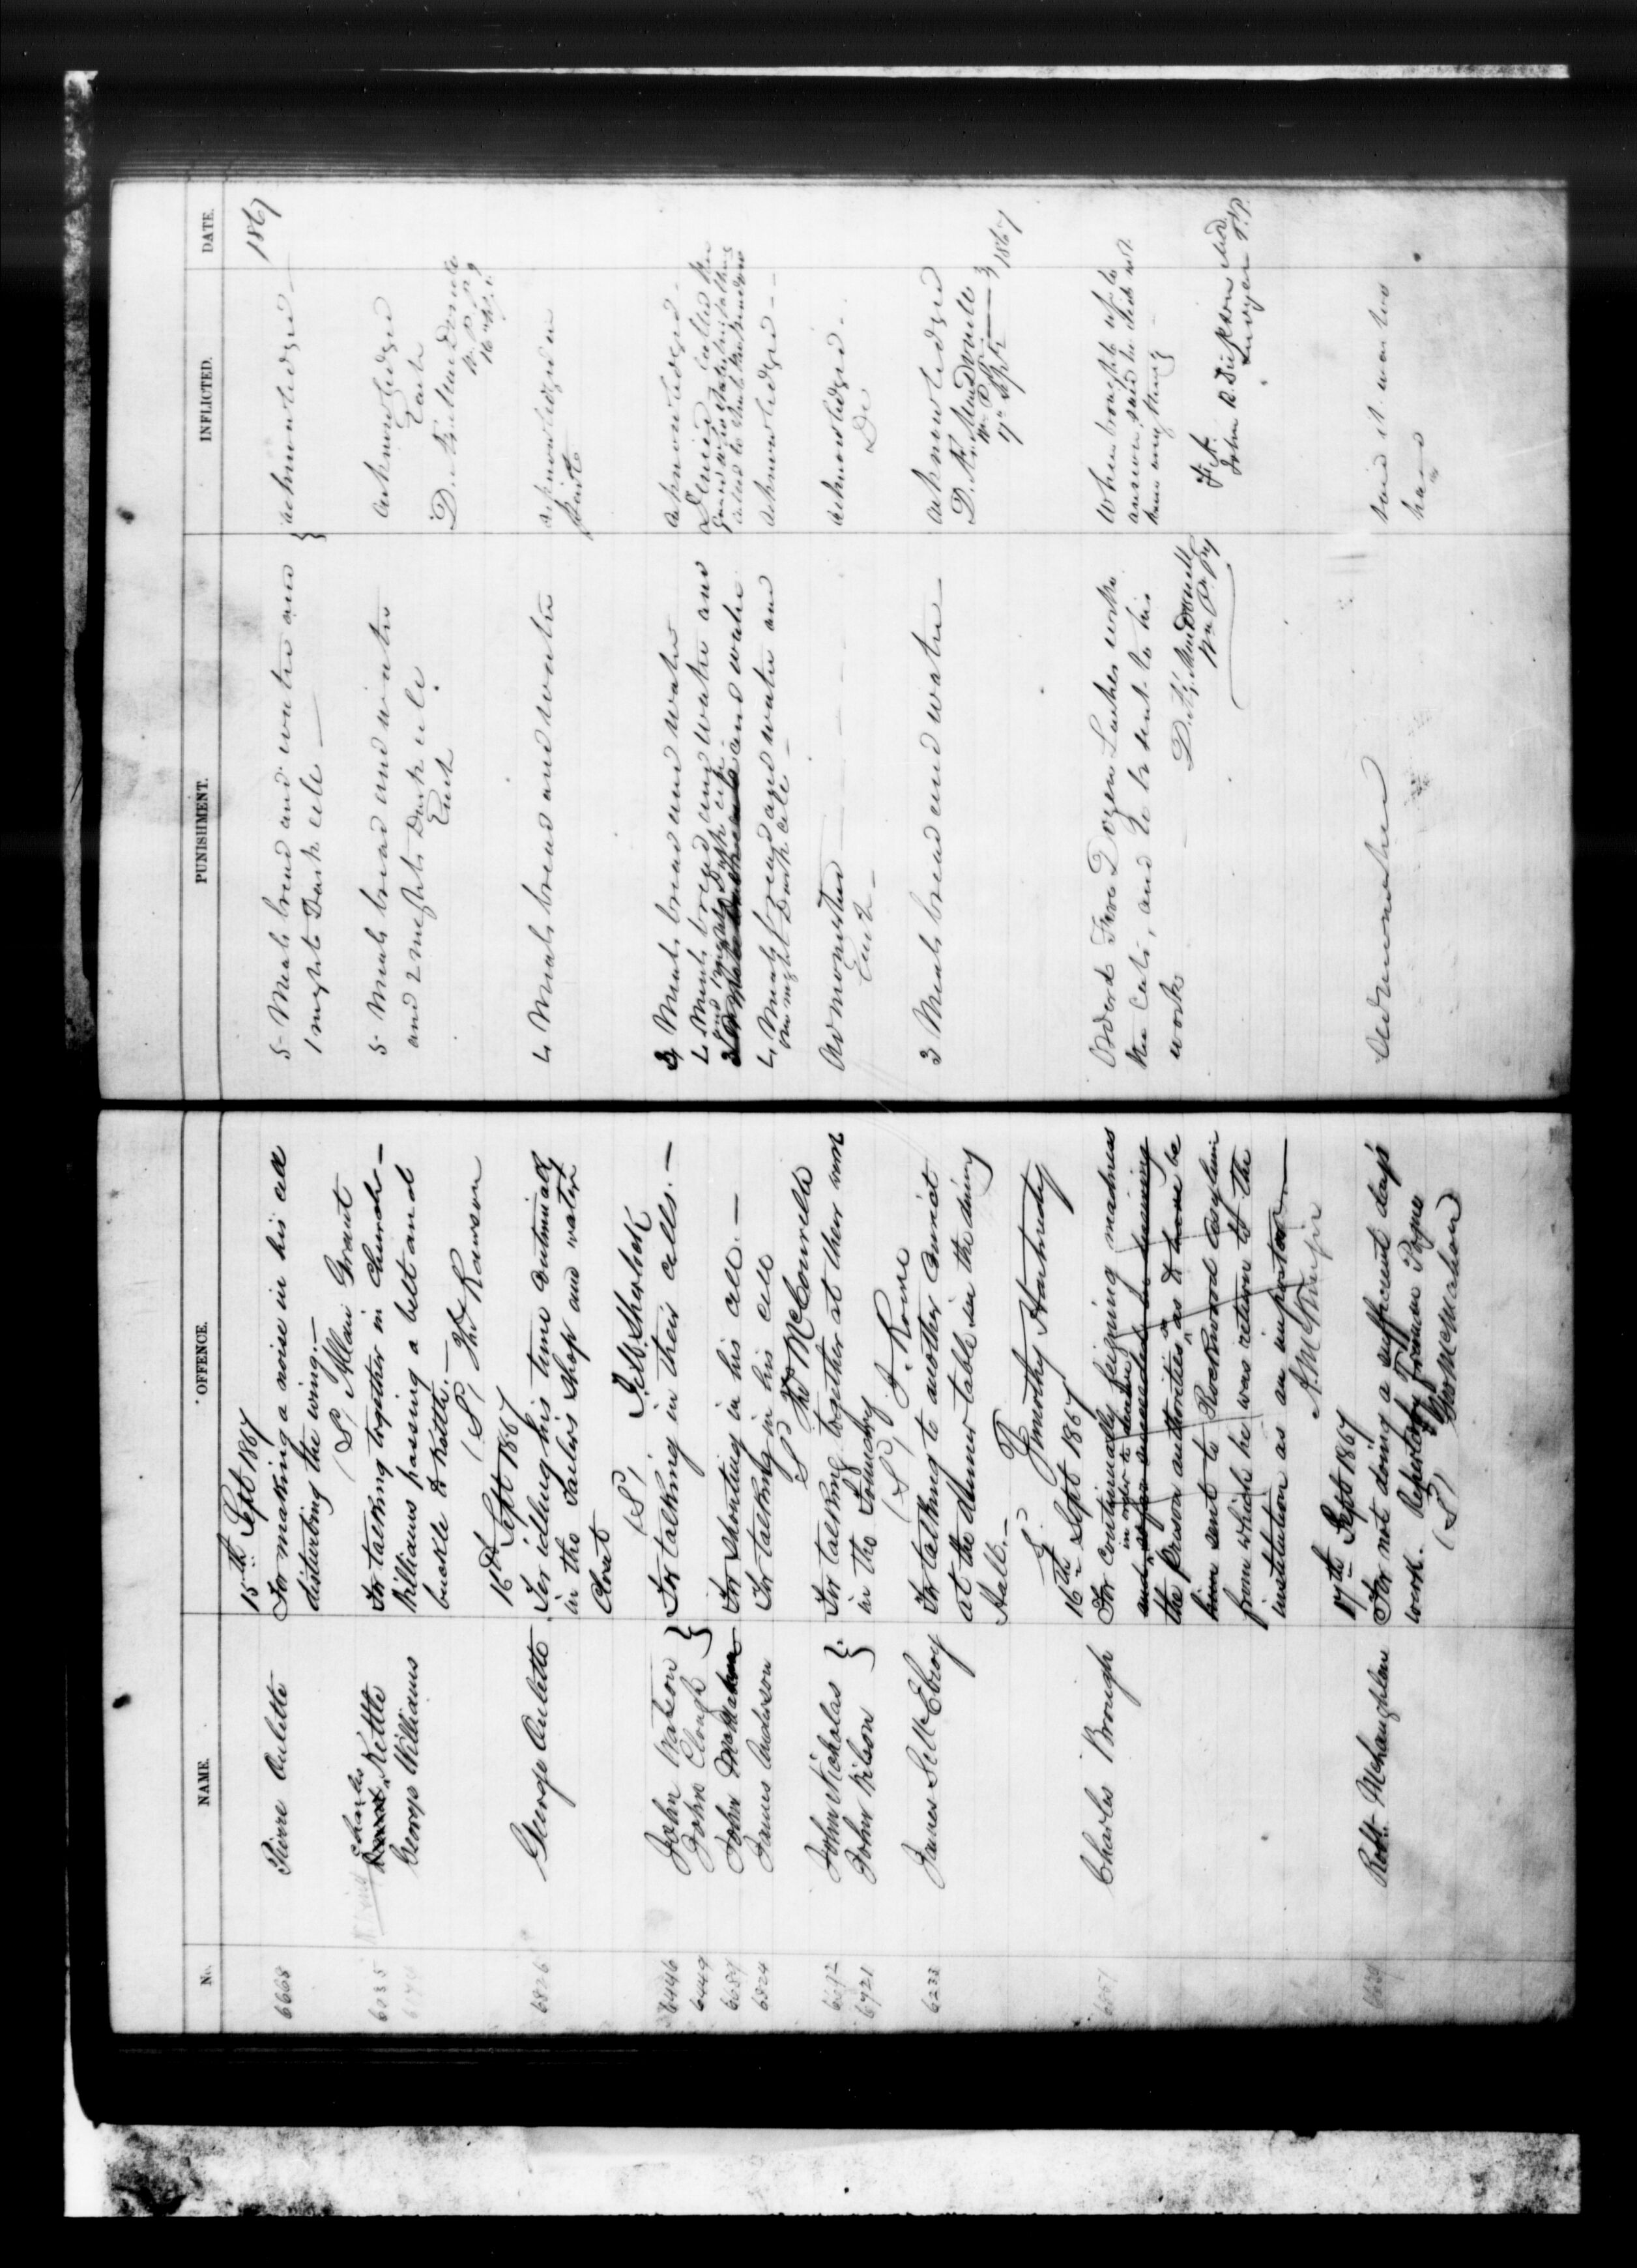 No.
NAME.
OFFENCE.
PUNISHMENT.
INFLICTED.
DATE.
15th Sept 1867
1867
6668
Pierre Oulette
For making a noise in his cell
disturbing the wing.—
(S) Allain Grant
5 Meals bread and water and
1 night Dark cell —
acknowledged —
Charles
Kettle
George Williams
For talking together in Church —
Williams passing a belt and
buckle to Kettle.—
(S) Thos Rawson
5 Meals bread and water
and 2 nights Dark cell
Each
acknowledged
Each
D. Æ. MacDonell
W. P. P.
16th Sept 1867
6826
George Oulette
For idling his time continually
in the Tailor's shop and water
Closet
(S) J. W. Sherlock
4 Meals bread and water
acknowledged in
part
6446
John Watson
6449
John Clough
For talking in their cells. —
6689
John McMahon
For shouting in his cell. —
6824
James Anderson
For talking in his cell
S Thos McConville
3 Meals bread and water
4 Meals bread and water and
and 1 night Dark cell
and water
4 Meals bread and water and
one night Dark cell —
acknowledged —
Denied
acknowledged —
6692
John Nicholas
6721
John Wilson
For talking together at their work
in the Foundry
(S) J. Rowe
Admonished
Each —
acknowledged —
Do
6233
James S. McElroy
For talking to another Convict
at the dinner table in the dining
Hall.—
S. T. Timothy Hartnedy
3 Meals bread and water —
acknowledged
D. Æ. MacDonell
W. P. P.
17th Sept 1867
16th Sept 1867
Charles Brough
For continually feigning madness
in order to
and so far succeeded in deceiving
the prison authorities as to have be
him sent to Rockwood Asylum
from which he was return to the
institution as an impostor —
Ordered Five Dozen Lashes with
the Cats, and to be sent to his
work
D. Æ. MacDonell
W. P. P.
When brought up to
answer, said he did not
know any thing
Fit.
John R. Dickson M.D.
Surgeon P.P.
17th Sept 1867
Robt McLaughlan
For not doing a sufficient day's
work. Reported by Foreman Payne
(S) Thos McMahon
Admonished
said it was too
hard